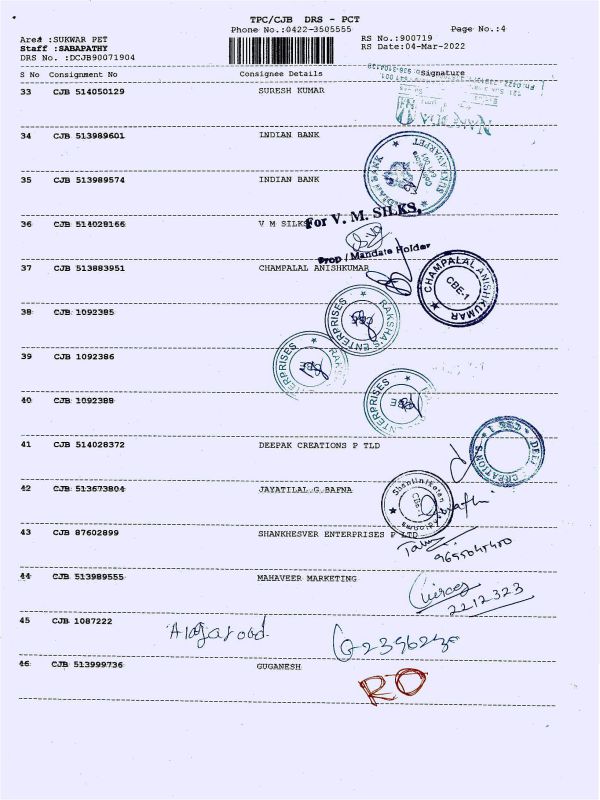 TPC/CJB DRS - PCT
Phone No.:0422-3505555
Page No.:4
Area :SUKWAR PET
RS No.:900719
Staff :SABAPATHY
RS Date:04-Mar-2022
DRS No. :DCJB90071904
S No Consignment No Consignee Details Signature
33 CJB 514050129 SURESH KUMAR
34 CJB 513989601 INDIAN BANK
INDIAN BANK
35 CJB 513989574 INDIAN BANK
For V. M. SILKS,
36 CJB 514028166 V M SILKS
Prop / Mandate Holder
37 CJB 513883951 CHAMPALAL ANISHKUMAR
CHAMPALAL ANISHKUMAR
CBE-1
38 CJB 1092385
RAKSHA'S ENTERPRISES
39 CJB 1092386
ENTERPRISES
40 CJB 1092388
ENTERPRISES
41 CJB 514028372 DEEPAK CREATIONS P TLD
CREATIONS
42 CJB 513673804 JAYATILAL G BAFNA
43 CJB 87602899 SHANKHESVER ENTERPRISES P LTD
44 CJB 513989555 MAHAVEER MARKETING
2212323
45 CJB 1087222
46 CJB 513999736 GUGANESH
RO